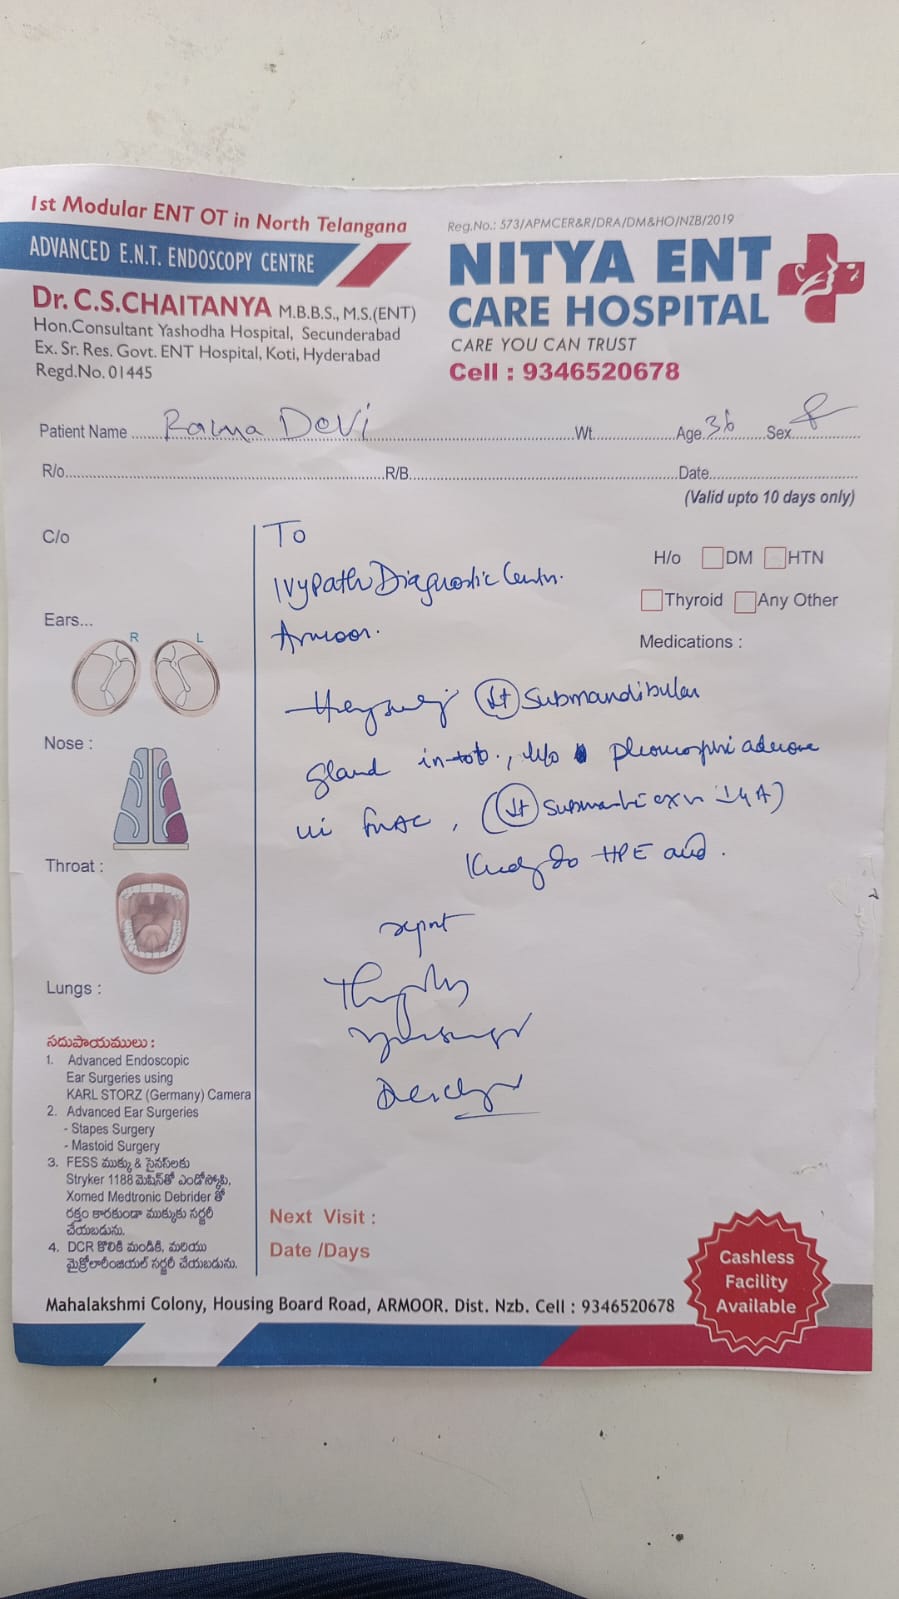 1st Modular ENT OT in North Telangana
ADVANCED E.N.T. ENDOSCOPY CENTRE
Dr. C.S.CHAITANYA M.B.B.S., M.S.(ENT)
Hon.Consultant Yashodha Hospital, Secunderabad
Ex. Sr. Res. Govt. ENT Hospital, Koti, Hyderabad
Regd.No. 01445
Reg.No.: 573/APMCER&R/DRA/DM&HO/NZB/2019
NITYA ENT
CARE HOSPITAL
CARE YOU CAN TRUST
Cell : 9346520678
Patient Name Rama Devi Wt. Age 36 Sex f
R/o R/B Date
(Valid upto 10 days only)
C/o
Ears...
R L
Nose :
Throat :
Lungs :
H/o DM HTN
Thyroid Any Other
Medications :
To
Ivypath Diagnostic Centre.
Armoor.
Submandibular
gland in-toto.,
FNAC,
Kindly do HPE and.
report
సదుపాయములు :
1. Advanced Endoscopic
Ear Surgeries using
KARL STORZ (Germany) Camera
2. Advanced Ear Surgeries
- Stapes Surgery
- Mastoid Surgery
3. FESS ముక్కు & సైనస్‌లకు
Stryker 1188 మెషిన్‌తో ఎండోస్కోపి,
Xomed Medtronic Debrider తో
రక్తం కారకుండా ముక్కుకు సర్జరీ
చేయబడును.
4. DCR మరియు
సర్జరీ చేయబడును.
Next Visit :
Date /Days
Cashless
Facility
Available
Mahalakshmi Colony, Housing Board Road, ARMOOR. Dist. Nzb. Cell : 9346520678